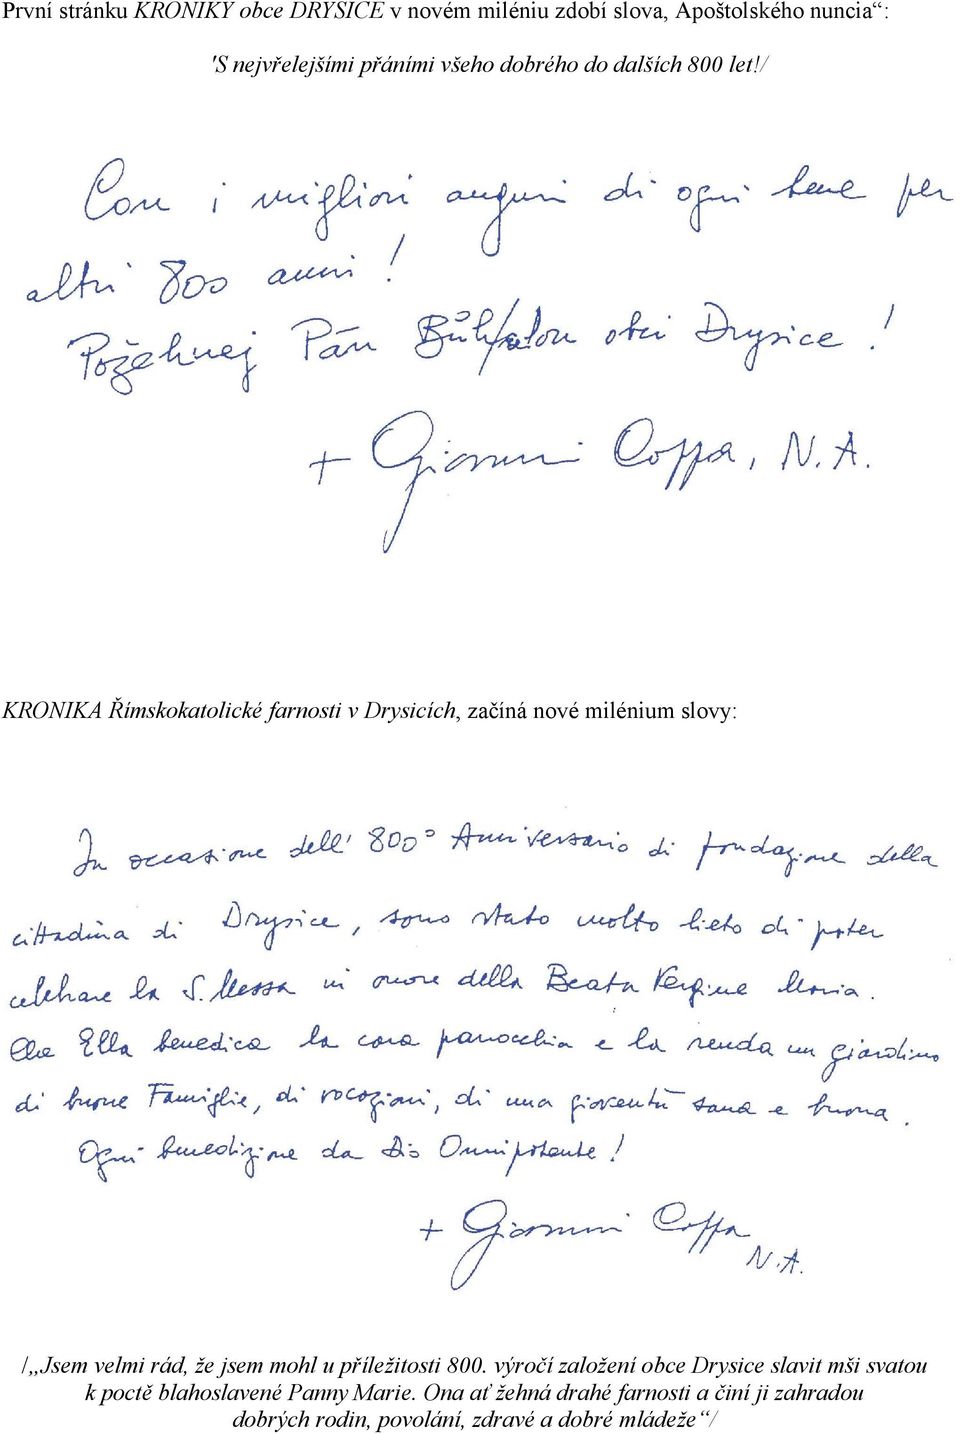 První stránku KRONIKY obce DRYSICE v novém miléniu zdobí slova, Apoštolského nuncia“:
'S nejvřelejšími přáními všeho dobrého do dalších 800 let!/
Con i migliori auguri di ogni bene per
altri 800 anni!
Požehnej Pán Bůh obci Drysice!
+ Giovanni Coppa, N.A.
KRONIKA Římskokatolické farnosti v Drysicích, začíná nové milénium slovy:
In occasione dell' 800° Anniversario di fondazione della
cittadina di Drysice, sono stato molto lieto di poter
celebrare la S. Messa in onore della Beata Vergine Maria.
Che Ella benedica la cara parrocchia e la renda un giardino
di buone Famiglie, di vocazioni, di una gioventù sana e buona.
Ogni benedizione da Dio Onnipotente!
+ Giovanni Coppa
N.A.
/„Jsem velmi rád, že jsem mohl u příležitosti 800. výročí založení obce Drysice slavit mši svatou
k poctě blahoslavené Panny Marie. Ona ať žehná drahé farnosti a činí ji zahradou
dobrých rodin, povolání, zdravé a dobré mládeže“/